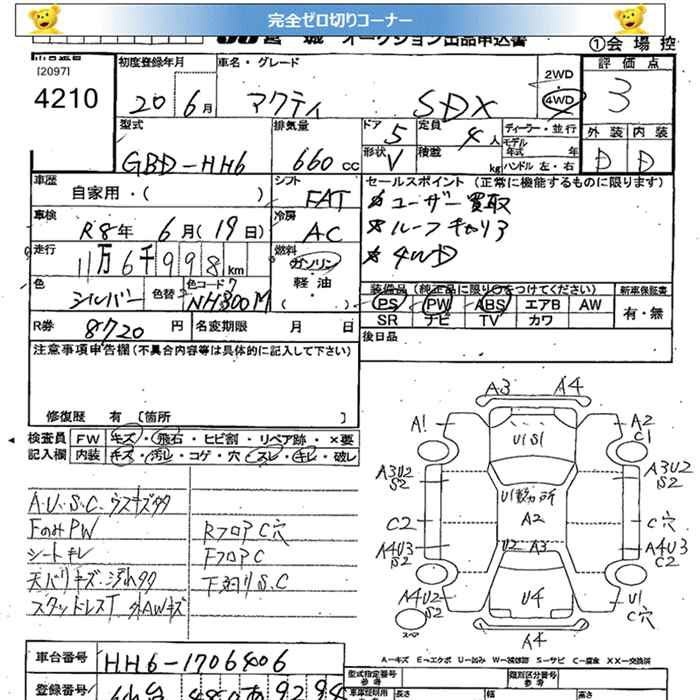 完全ゼロ切りコーナー
オークション出品申込書
①会場控
[2097]
4210
初度登録年月
20年6月
車名・グレード
アクティ SDX
2WD
4WD
評価点
3
外装 内装
D D
型式
GBD-HH6
排気量
660cc
ドア
5
形状
V
定員
4人
積載
kg
ディーラー・並行
モデル年式 年
ハンドル 左・右
車歴
自家用・( )
シフト
FAT
セールスポイント(正常に機能するものに限ります)
*ユーザー買取
*ルーフキャリア
*4WD
車検
R8年6月(19日)
冷房
AC
走行
11万6千998km
燃料
ガソリン
軽油
( )
色
シルバー
色替
色コード
NH300M
装備品(純正品に限り○をつけてください)
PS PW ABS エアB AW
SR ナビ TV カワ
新車保証書
有・無
R券
8720円
名変期限 月 日
後日品
注意事項申告欄(不具合内容等は具体的に記入して下さい)
修復歴 有 [箇所 ]
検査員記入欄
FW キズ・飛石・ヒビ割・リペア跡・×要
内装 キズ・汚レ・コゲ・穴・スレ・キレ・破レ
A.U.S.C.ウスキズタタ
FのみPW
シートキレ
スタッドレスT 外AWキズ
RフロアC穴
FフロアC
下廻りS.C
A3 A4
A1 A2
C1
U1S1
A3U2
S2
A3U2
S2
A2
C2
C穴
U2 A3
A4U3
S2
A4U3
C2
A4U2
S2
U4
U1
C穴
スペア
A4
A-キズ E-エクボ U-凹み W-補修跡 S-サビ C-腐食 XX-交換済
車台番号
HH6-1706406
登録番号
型式指定番号
参考
類別区分番号
参考
長さ 幅 高さ